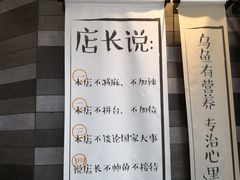 店长说:
一 本店不减麻、不加辣
二 本店不拼台、不加信
三 本店不谈论国家大事
四 说店长不帅的不接待
乌鱼有营养 专治心里